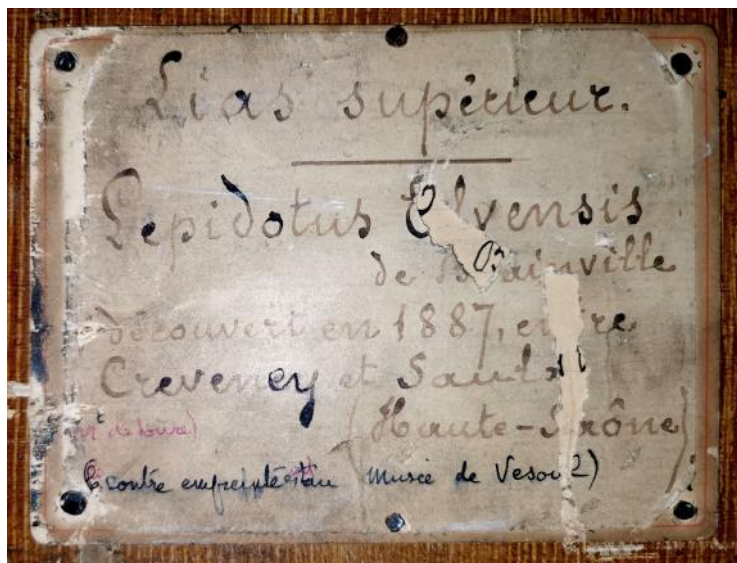 Lias supérieur.
Lepidotus Elvensis
de Blainville
découvert en 1887, entre
Creveney et Saulx
(Haute-Saône)
(contre empreinte au Musée de Vesoul)